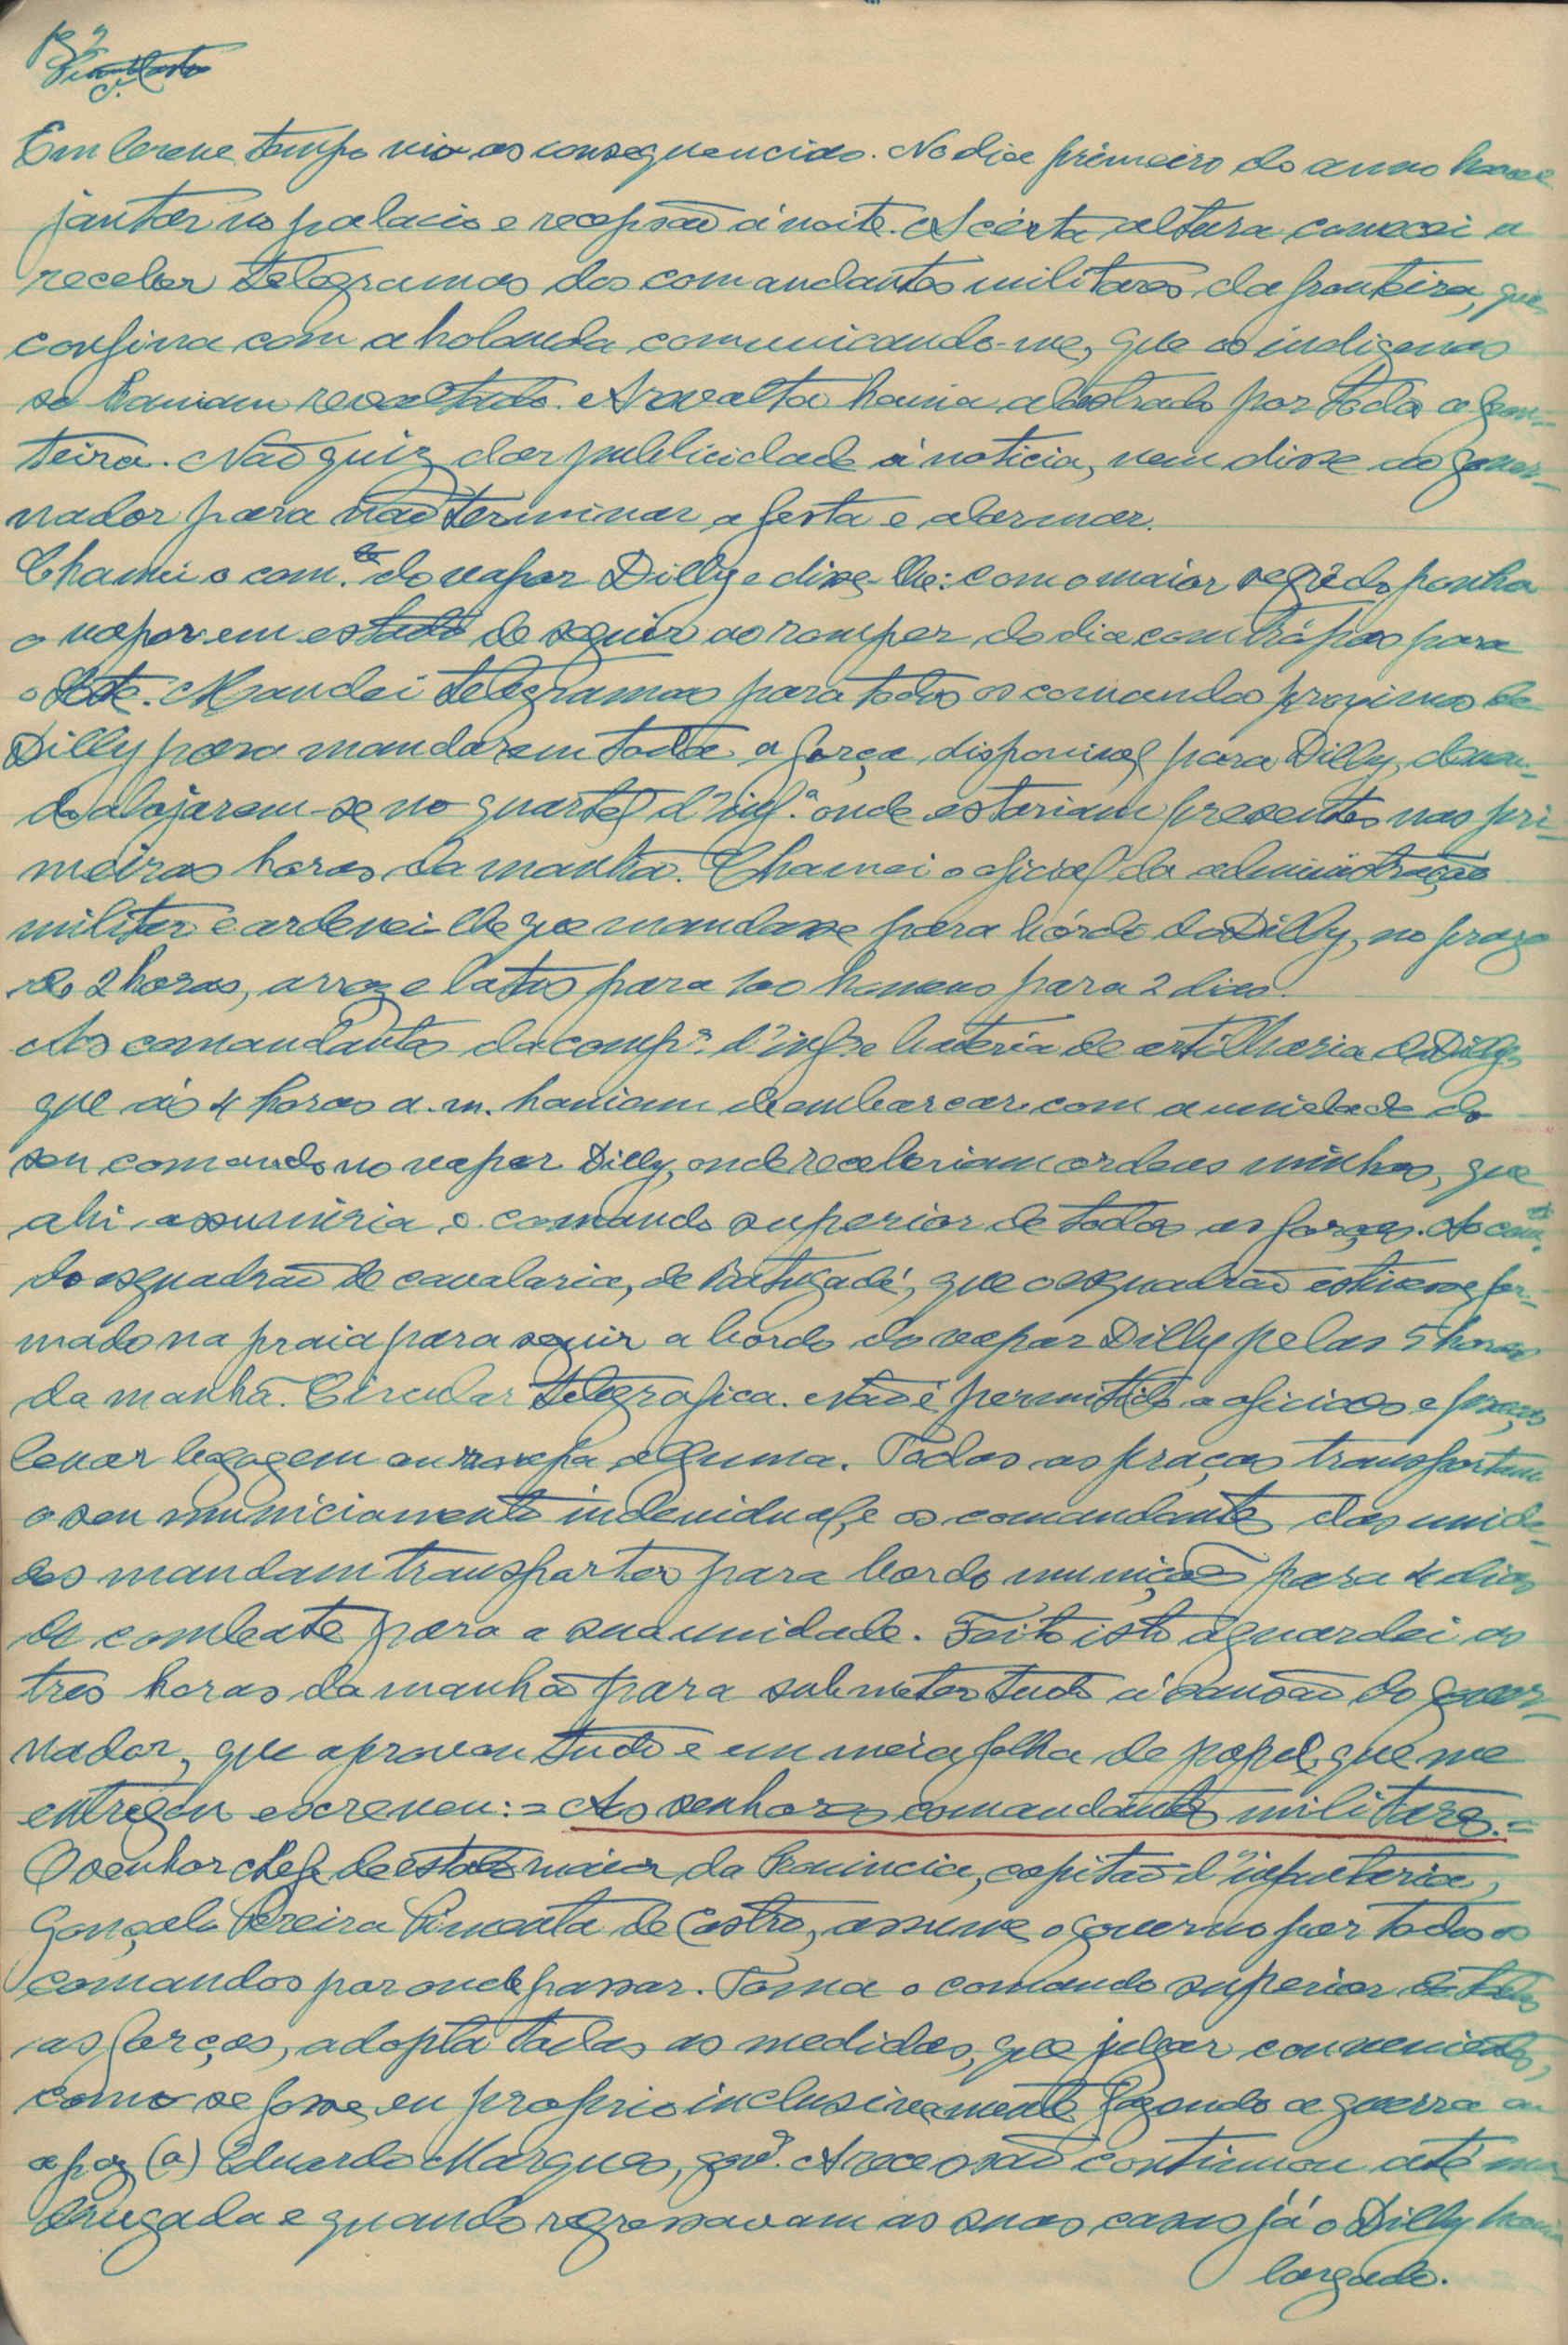 Em breve tempo viu as consequencias. No dia primeiro do anno houve
jantar no palacio e recepsão á noite. A cérta altura comecei a
receber telegramas dos comandantes militares da fronteira, que
confina com a holanda comunicando-me, que os indigenas
se haviam revoltado. A revolta havia alastrado por toda a fron-
teira. Não quiz dar publicidade á noticia, nem disse ao gover-
nador para não terminar a festa e alarmar.
Chamei o com.te do vapor Dilly e disse-lhe: com o maior segrêdo ponha
o vapor em estado de seguir ao romper do dia com trópas para
o Oéste. Mandei telegramas para todos os comandos proximos de
Dilly para mandarem toda a força disponivel para Dilly, deven-
do alojarem-se no quartel d'inf.a onde estariam presentes nas pri-
meiras horas da manhã. Chamei o oficial da administração
militar e ordenei-lhe que mandasse para bórdo do Dilly, no prazo
de 2 horas, arroz e latas para 100 homens para 2 dias.
Aos comandantes da comp.a d'inf.a e bateria de artilharia de Dilly
que ás 4 horas a.m. haviam de embarcar com a unidade do
seu comando no vapor Dilly, onde receberiam ordens minhas, que
ahi assumiria o comando superior de todas as forças. Ao com.te
do esquadrão de cavalaria, de Batugadé, que o esquadrão estivesse for-
mado na praia para seguir a bordo do vapor Dilly pelas 5 horas
da manhã. Circular telegrafica. Não é permitido a oficiaes e praças
levar bagagem ou roupa alguma. Todas as praças transportam
o seu municiamento indevidual, e os comandantes das unida-
des mandam transportar para bordo munições para 4 dias
de combate para a sua unidade. Feito isto aguardei as
três horas da manhã para submeter tudo á sansão do gover-
nador, que aprovou tudo e em meia folha de papel, que me
entregou escreveu: = Aos senhores comandantes militares. =
O senhor chefe de estado maior da Provincia, capitão d'infanteria,
Gonçalo Pereira Pimenta de Castro, assume o governo por todos os
comandos por onde passar. Toma o comando superior de todas
as forças, adopta todas as medidas, que julgar convenientes,
como se fosse eu proprio inclusivamente fazendo a guerra ou
a paz (a) Eduardo Marques, gov.or A recepsão continuou até ma-
drugada e quando regressavam as suas casas já o Dilly havia
largado.